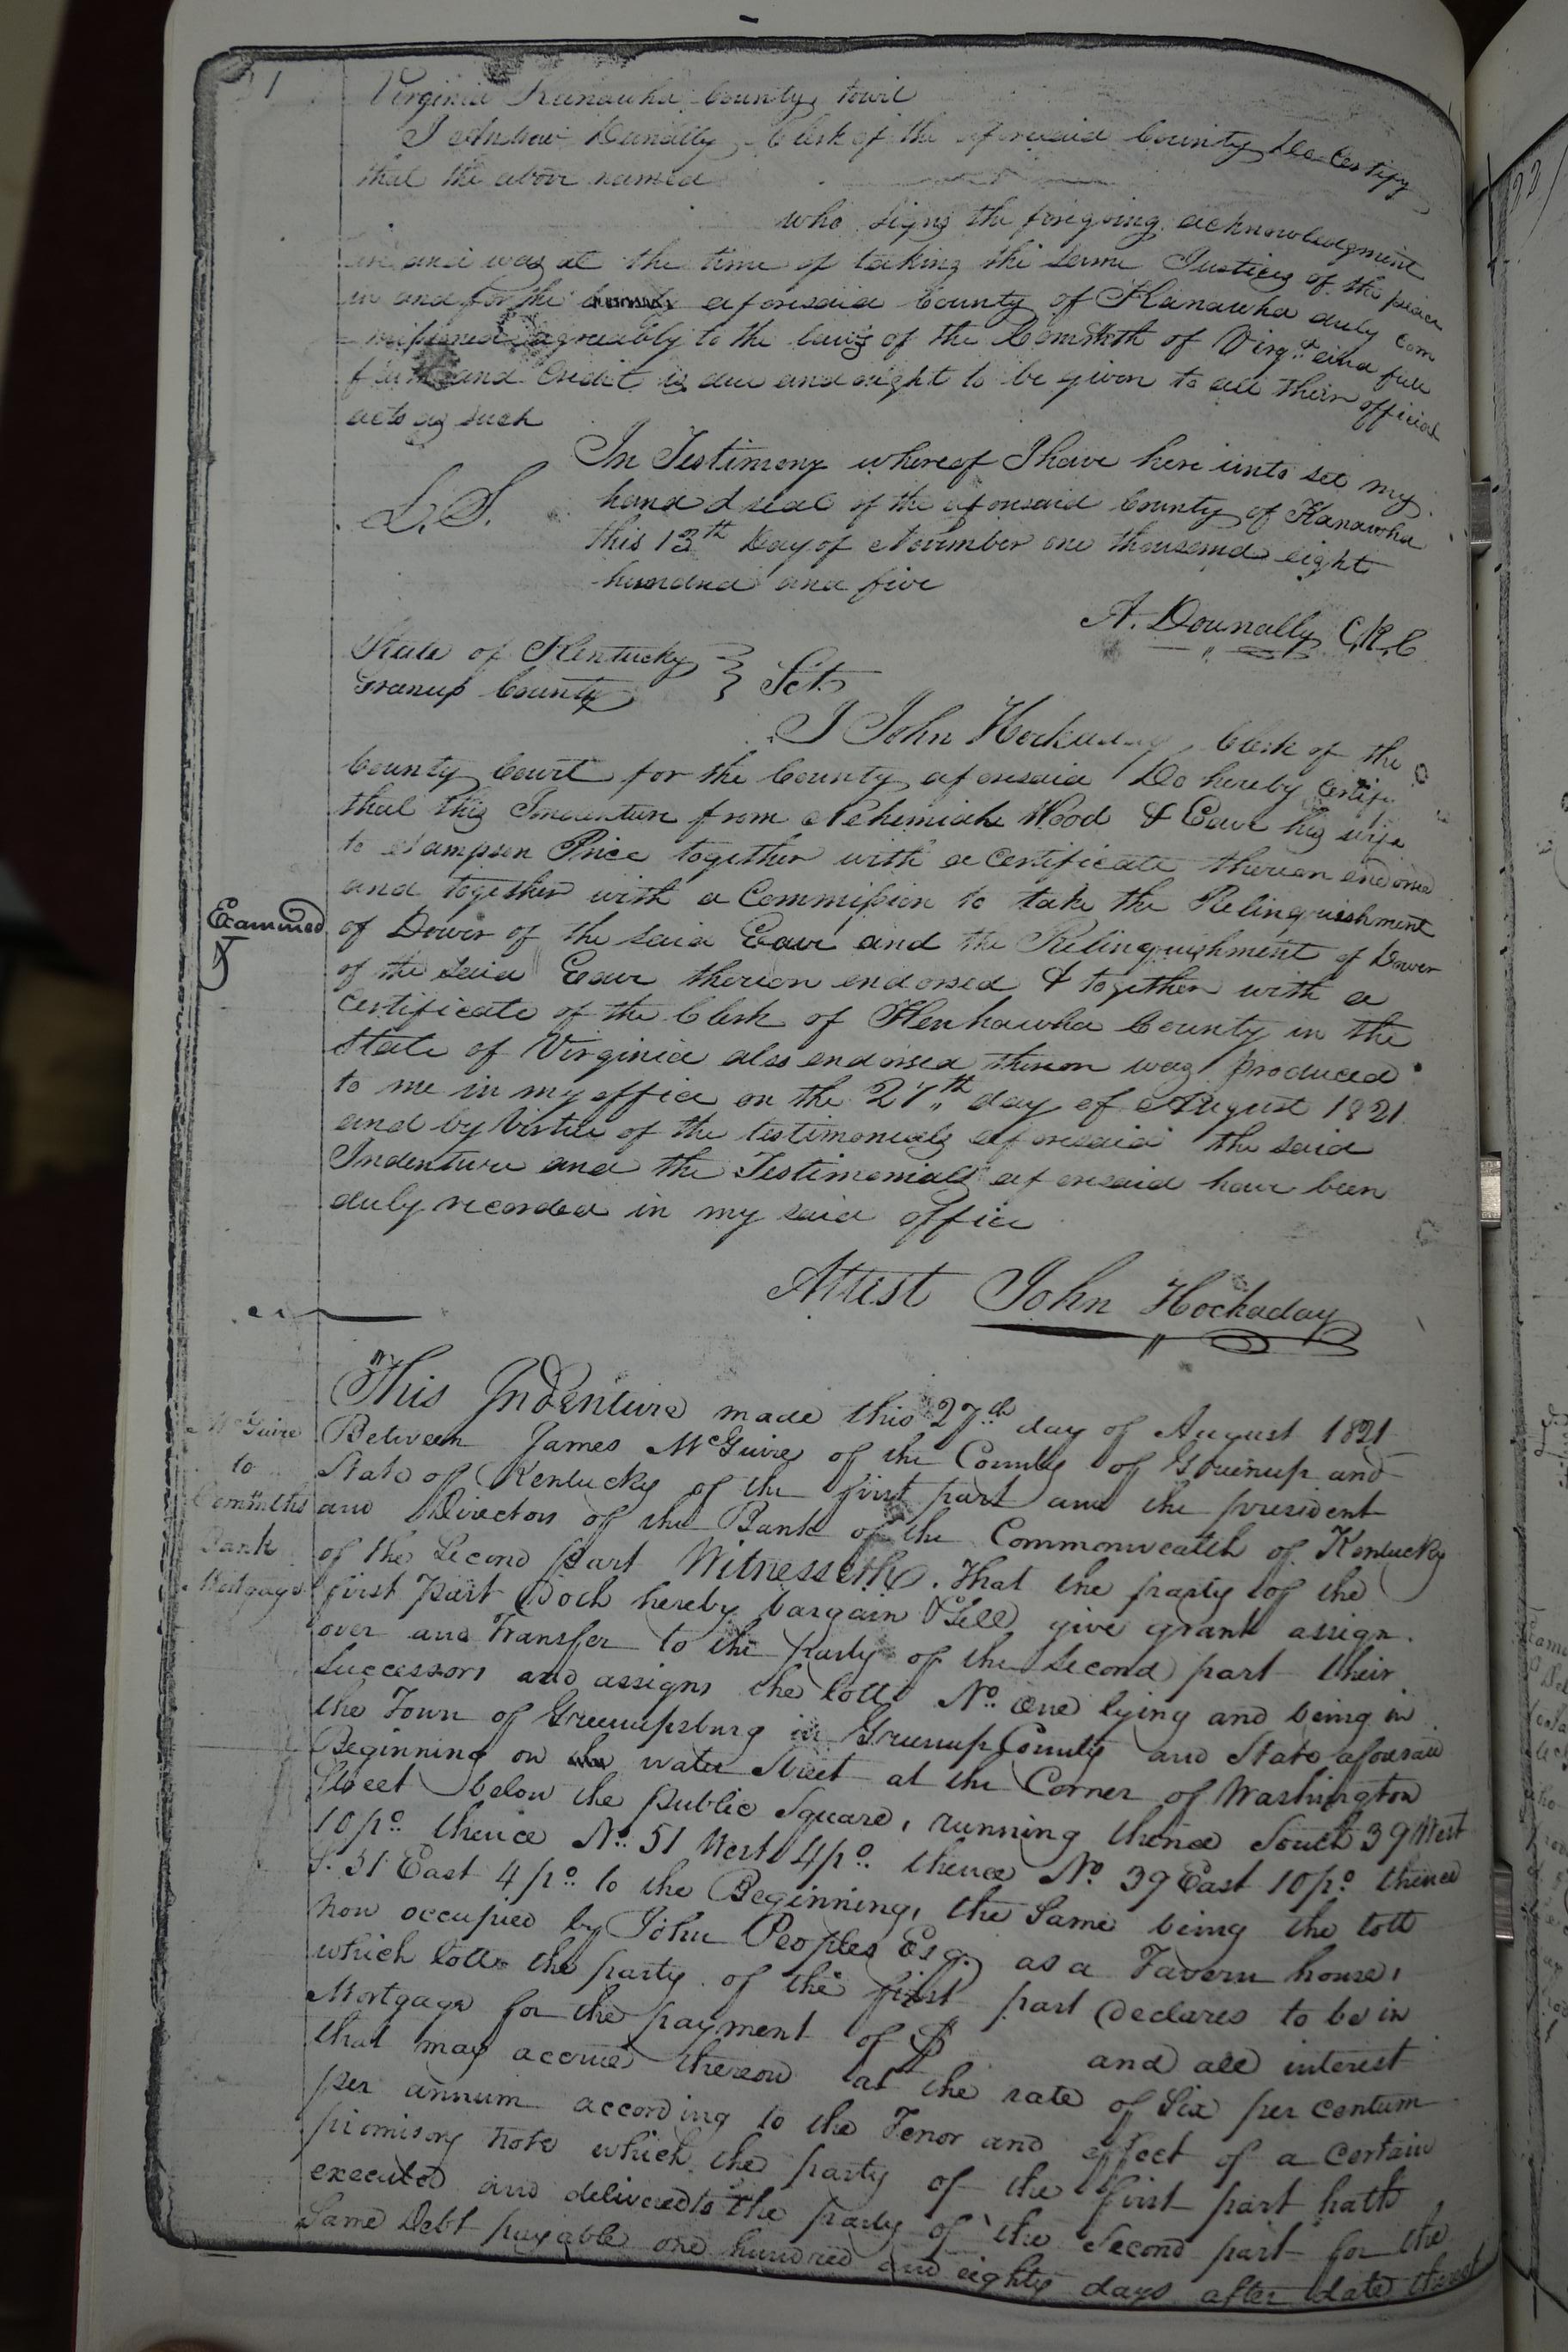 Virginia Kanawha County towit
I Andrew Donnally Clerk of the aforesaid County Do Certify
that the above named
who signs the foregoing acknowledgment
is and was at the time of taking the same Justices of the peace
in and for the aforesaid County of Kanawha duly Com
missioned agreeably to the laws of the Comnwth of Virga. and full
faith and Credit is due and ought to be given to all their official
acts as such
In Testimony whereof I have here unto set my
L.S.
hand & seal of the aforesaid County of Kanawha
this 13th Day of November one thousand eight
hundred and five
A. Donnally C.K.C
State of Kentucky
Greenup County } Sct.
I John Hockaday, Clerk of the
County Court for the County aforesaid Do hereby certify
that this Indenture from Nehemiah Wood & Eave his wife
to Sampson Price together with a Certificate thereon endorsed
and together with a Commission to take the Relinquishment
Examined
of Dower of the said Eave and the Relinquishment of Dower
of the said Eave thereon endorsed & together with a
Certificate of the Clerk of Kenhawha County in the
State of Virginia also endorsed thereon was produced
to me in my office on the 27th day of August 1821
and by Virtue of the testimonials aforesaid the said
Indenture and the Testimonials aforesaid have been
duly recorded in my said office
Attest John Hockaday
This Indenture made this 27th day of August 1821
McGuire
Between James McGuire of the County of Greenup and
to
State of Kentucky of the first part and the president
Commths
and Directors of the Bank of the Commonwealth of Kentucky
Bank
of the Second part Witnesseth. That the party of the
Mortgage
first part Doth hereby bargain & Sell give grant assign
over and Transfer to the party of the Second part their
Successors and assigns the lott No. one lying and being in
the Town of Greenupsburg in Greenup County and State aforesaid
Beginning on water Street at the Corner of Washington
Street below the public Square, running thence South 39 West
10 po. thence No. 51 West 4 po. thence No 39 East 10 po. thence
S. 51 East 4 po. to the Beginning, the Same being the lott
now occupied by John Peoples Esq. as a Tavern house,
which lott the party of the first part Declares to be in
Mortgage for the payment of $ and all interest
that may accrue thereon at the rate of Six per centum
per annum according to the Tenor and effect of a certain
promisory note which the party of the first part hath
executed and delivered to the party of the Second part for the
Same Debt payable one hundred and eighty days after date